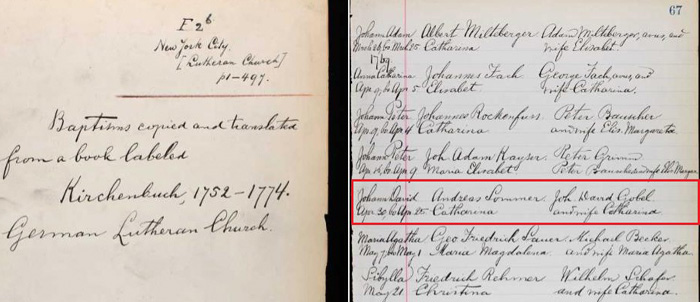 F 2 6
New York City.
[Lutheran Church]
p1-497.
Baptisms copied and translated
from a book labeled
Kirchenbuch, 1752-1774.
German Lutheran Church.
67
Johann Adam Albert Miltberger Adam Miltberger, avus, and
March 26, bo March 25 Catharina wife Elisabet.
1769
Anna Catharina Johannes Fach George Fach, avus, and
Apr 9, bo Apr 5 Elisabet wife Catharina.
Johann Peter Johannes Rockenfuss. Peter Bauscher
Apr 9, bo Apr 4 Catharina and wife Elis. Margareta.
Johann Peter Joh Adam Kayser. Peter Grimm
Apr 16, bo Apr 9 Maria Elisabet Peter Bauscher and wife Elis Margar
Johann David Andreas Sommer. Joh. David Gobel
Apr 30, bo Apr 25 Catharina and wife Catharina
Maria Agatha Geo Friedrich Lauer. Michael Becker
May 7, bo May 1 Maria Magdalena and wife Maria Agatha.
Sibylla Friedrich Rehmer Wilhelm Schafer
May 21 Christina and wife Catharina.